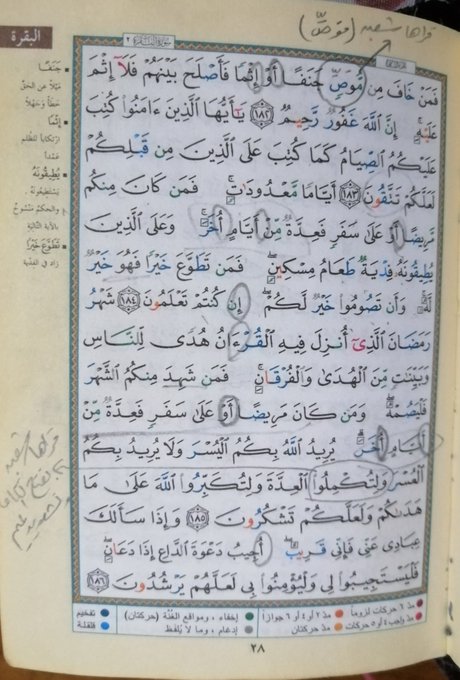 قرأها شعبة (مُوَصٍّ)
البقرة
سورة البقرة ٢
فَمَنْ خَافَ مِن مُّوصٍ جَنَفًا أَوْ إِثْمًا فَأَصْلَحَ بَيْنَهُمْ فَلَآ إِثْمَ
عَلَيْهِ ۚ إِنَّ ٱللَّهَ غَفُورٌ رَّحِيمٌ ١٨٢ يَٰٓأَيُّهَا ٱلَّذِينَ ءَامَنُوا۟ كُتِبَ
عَلَيْكُمُ ٱلصِّيَامُ كَمَا كُتِبَ عَلَى ٱلَّذِينَ مِن قَبْلِكُمْ
لَعَلَّكُمْ تَتَّقُونَ ١٨٣ أَيَّامًا مَّعْدُودَٰتٍ ۚ فَمَن كَانَ مِنكُم
مَّرِيضًا أَوْ عَلَىٰ سَفَرٍ فَعِدَّةٌ مِّنْ أَيَّامٍ أُخَرَ ۚ وَعَلَى ٱلَّذِينَ
يُطِيقُونَهُۥ فِدْيَةٌ طَعَامُ مِسْكِينٍ ۖ فَمَن تَطَوَّعَ خَيْرًا فَهُوَ خَيْرٌ
لَّهُۥ ۚ وَأَن تَصُومُوا۟ خَيْرٌ لَّكُمْ ۖ إِن كُنتُمْ تَعْلَمُونَ ١٨٤ شَهْرُ
رَمَضَانَ ٱلَّذِىٓ أُنزِلَ فِيهِ ٱلْقُرْءَانُ هُدًى لِّلنَّاسِ
وَبَيِّنَٰتٍ مِّنَ ٱلْهُدَىٰ وَٱلْفُرْقَانِ ۚ فَمَن شَهِدَ مِنكُمُ ٱلشَّهْرَ
فَلْيَصُمْهُ ۖ وَمَن كَانَ مَرِيضًا أَوْ عَلَىٰ سَفَرٍ فَعِدَّةٌ مِّنْ
أَيَّامٍ أُخَرَ ۗ يُرِيدُ ٱللَّهُ بِكُمُ ٱلْيُسْرَ وَلَا يُرِيدُ بِكُمُ
ٱلْعُسْرَ وَلِتُكْمِلُوا۟ ٱلْعِدَّةَ وَلِتُكَبِّرُوا۟ ٱللَّهَ عَلَىٰ مَا
هَدَىٰكُمْ وَلَعَلَّكُمْ تَشْكُرُونَ ١٨٥ وَإِذَا سَأَلَكَ
عِبَادِى عَنِّى فَإِنِّى قَرِيبٌ ۖ أُجِيبُ دَعْوَةَ ٱلدَّاعِ إِذَا دَعَانِ ۖ
فَلْيَسْتَجِيبُوا۟ لِى وَلْيُؤْمِنُوا۟ بِى لَعَلَّهُمْ يَرْشُدُونَ ١٨٦
جَنَفًا
مَيْلًا عن الحقّ
خطأ وجهلًا
إثمًا
ارتكابًا للظلم
عمدًا
يُطيقونه
يستطيعونه
والحكم منسوخ
بالآية التالية
تطوّع خيرًا
زاد في الفدية
قرأها شعبة
مدّ ٦ حركات لزومًا
مدّ ٢ أو ٤ أو ٦ جوازًا
إخفاء، ومواقع الغُنَّة (حركتان)
تفخيم
مدّ واجب ٤ أو ٥ حركات
مدّ حركتان
إدغام، وما لا يُلفظ
قلقلة
٢٨